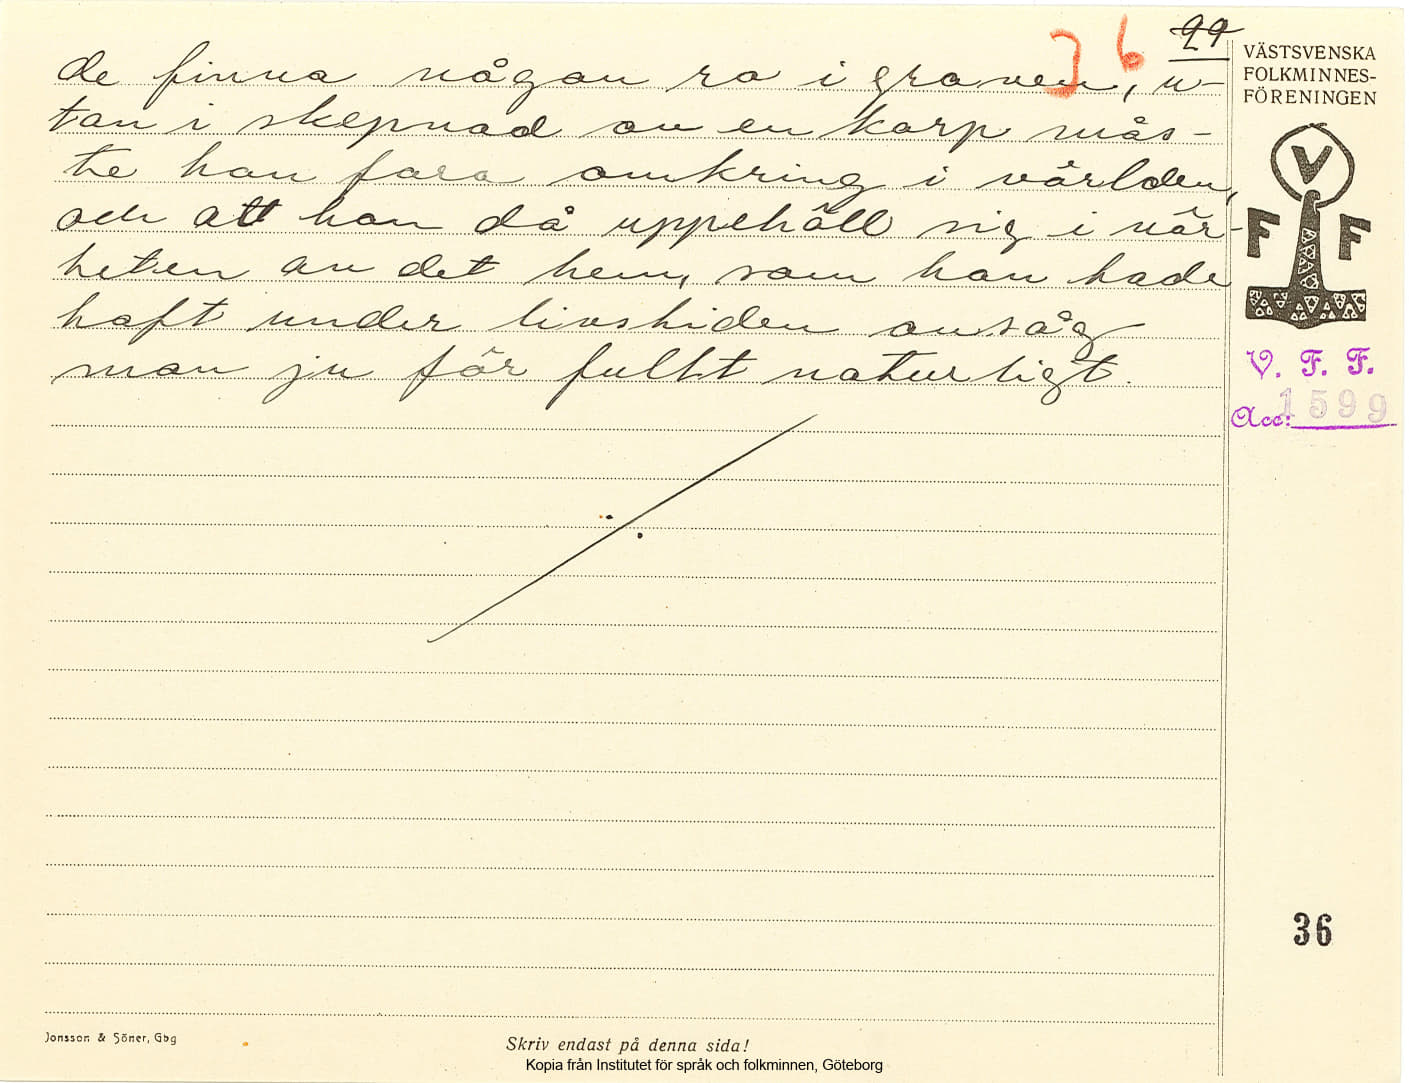 36 29
de finna någon ro i graven, u-
tan i skepnad av en korp mås-
te han fara omkring i världen,
och att han då uppehöll sig i när-
heten av det hem, som han hade
haft under livstiden ansåg
man ju för fullt naturligt.
VÄSTSVENSKA
FOLKMINNES-
FÖRENINGEN
V
F F
V. F. F.
Acc: 1599
36
Jonsson & Söner, Gbg
Skriv endast på denna sida!
Kopia från Institutet för språk och folkminnen, Göteborg